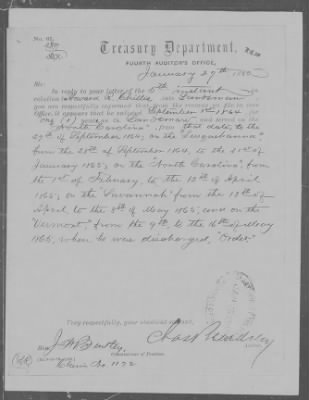 No. 62.
Treasury Department,
FOURTH AUDITOR'S OFFICE,
January 29th 1880
Sir:
In reply to your letter of the 5th instant in
relation to Howard R. late Landsman
you are respectfully informed that, from the records on file in this
Office, it appears that he enlisted September 1st 1864 for
one (1) year as a Landsman and served on the
"North Carolina", from that date, to the
27th of September 1864; on the "Susquehanna"
from the 28th of September 1864, to the 31st of
January 1865; on the "North Carolina", from
the 1st of February, to the 12th of April
1865; on the "Savannah" from the 13th of
April, to the 8th of May 1865, and on the
"Vermont", from the 9th, to the 16th of May
1865, when he was discharged, "Order."
Very respectfully, your obedient servant,
Auditor.
J. A. Bentley
Commissioner of Pensions.
Claim No. 1172